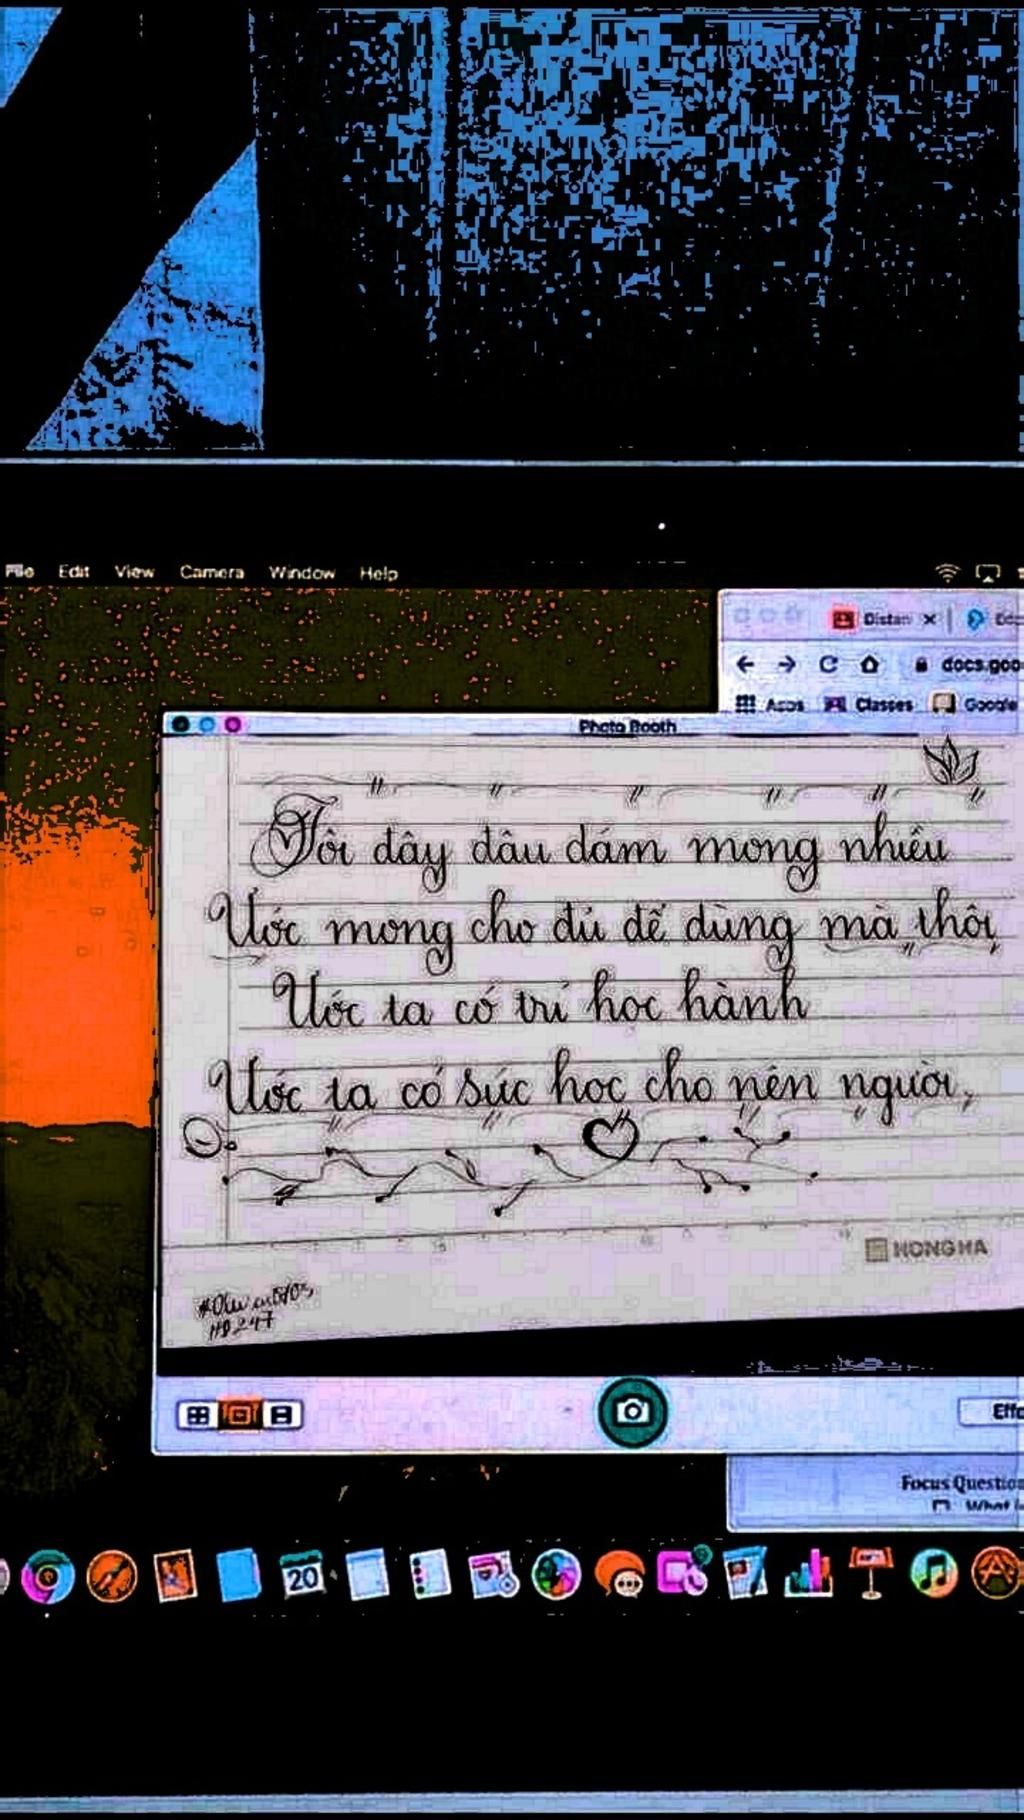 File Edit View Camera Window Help
Distan
docs.goo
Apps Classes Google
Photo Booth
Tôi đây đâu dám mong nhiều
Ước mong cho đủ để dùng mà thôi
Ước ta có trí học hành
Ước ta có sức học cho nên người,
HONG HA
247
Effe
Focus Question
What i
20